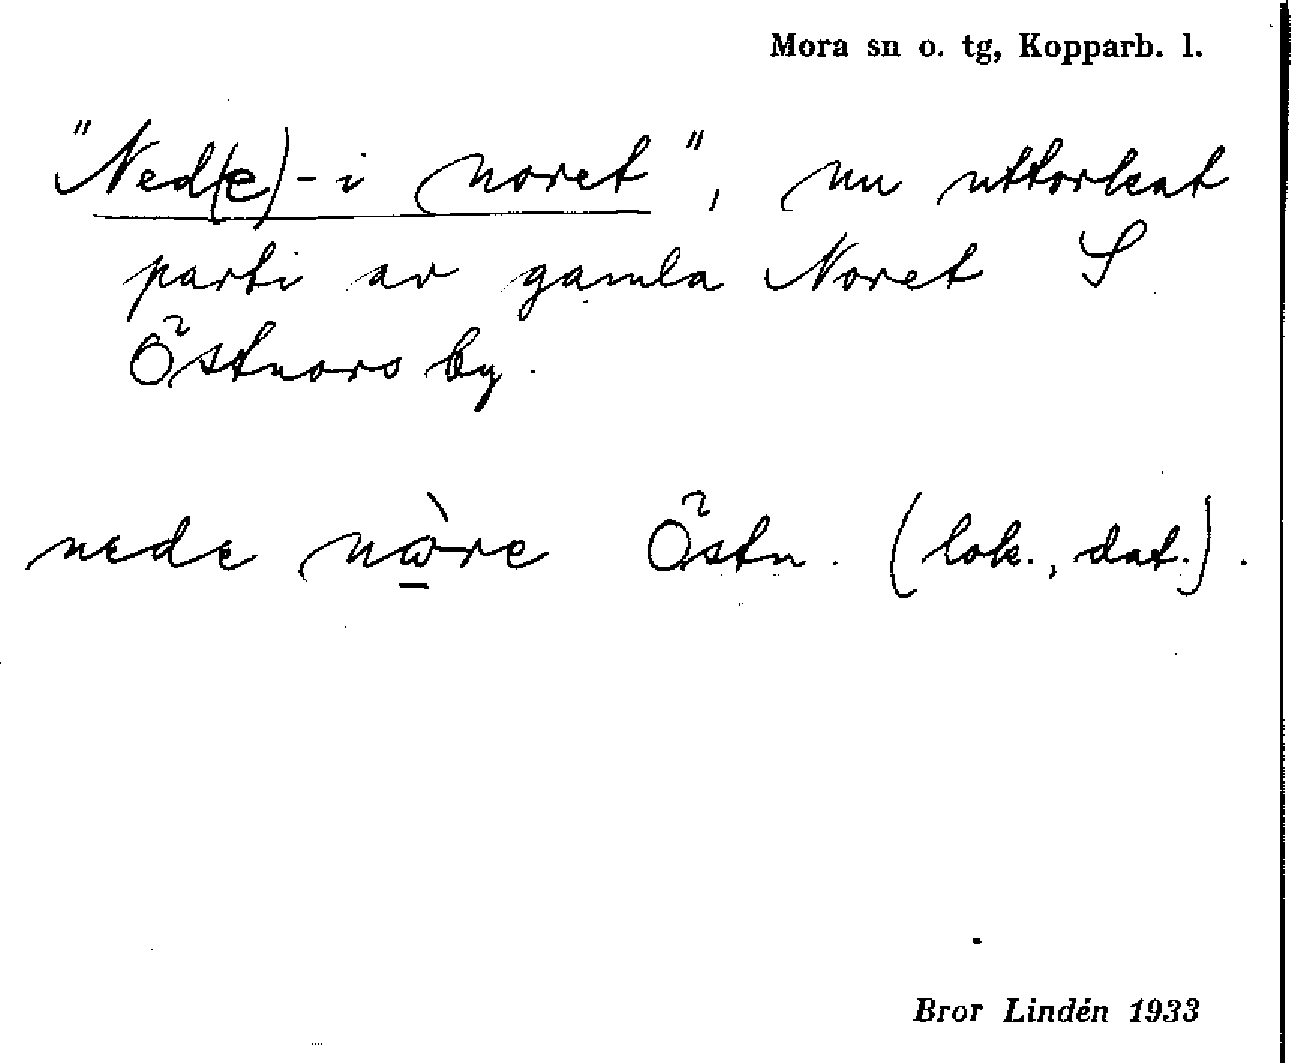 Mora sn o. tg, Kopparb. l.
"Ned(e)-i noret", nu uttorkat
parti av gamla Noret S
Östnors by.
nede nὼre Östn. (lok., dat.).
Bror Lindén 1933